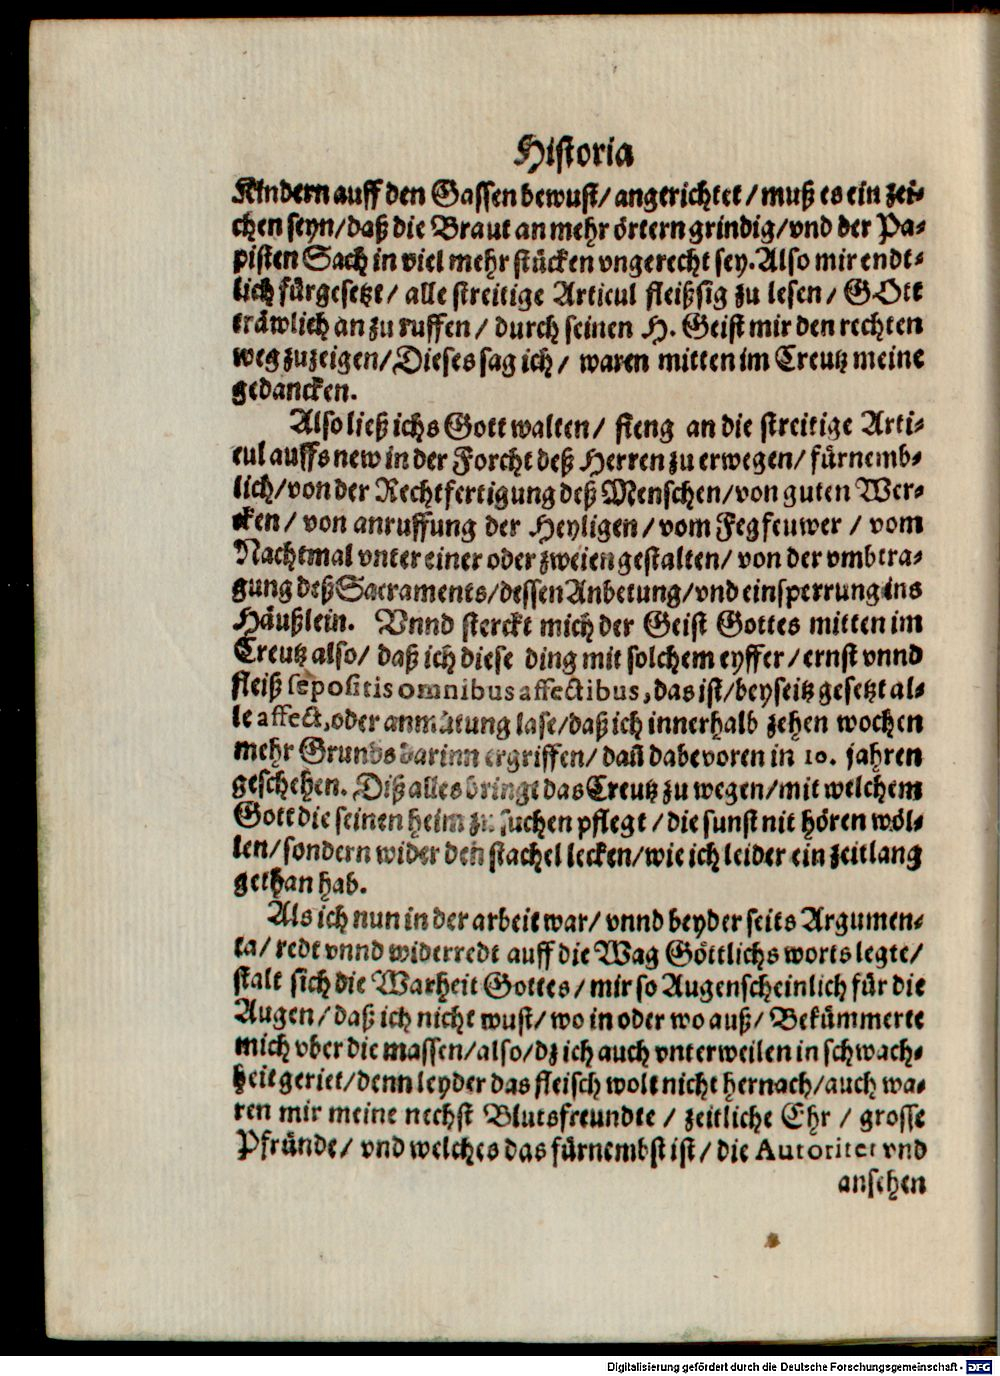 Historia
Kindern auff den Gassen bewust/ angerichtet/ muß es ein zei-
chen seyn/ daß die Braut an mehr örtern grindig/ vnd der Pa-
pisten Sach in viel mehr stücken vngerecht sey. Also mir endt-
lich fürgesetzt/ alle streitige Articul fleißsig zu lesen/ GOtt
träwlich an zu ruffen/ durch seinen H. Geist mir den rechten
weg zuzeigen/ Dieses sag ich/ waren mitten im Creutz meine
gedancken.
Also ließ ichs Gott walten/ fieng an die streitige Arti-
cul auffs new in der Forcht deß Herren zu erwegen/ fürnemb-
lich/ von der Rechtfertigung deß Menschen/ von guten Wer-
cken/ von anruffung der Heyligen/ vom Fegfeuwer/ vom
Nachtmal vnter einer oder zweien gestalten/ von der vmbtra-
gung deß Sacraments/ dessen Anbetung/ vnd einsperrung ins
Häußlein. Vnnd sterckt mich der Geist Gottes mitten im
Creutz also/ daß ich diese ding mit solchem eyffer/ ernst vnnd
fleiß sepositis omnibus affectibus, das ist/ beyseitz gesetzt al-
le affect, oder anmütung lase/ daß ich innerhalb zehen wochen
mehr Grunds darinn ergriffen/ dañ dabevoren in 10. jahren
geschehen. Diß alles bringt das Creutz zu wegen/ mit welchem
Gott die seinen heim zu suchen pflegt/ die sunst nit hören wöl-
len/ sondern wider den stachel lecken/ wie ich leider ein zeitlang
gethan hab.
Als ich nun in der arbeit war/ vnnd beyder seits Argumen-
ta/ redt vnnd widerredt auff die Wag Göttlichs worts legte/
stalt sich die Warheit Gottes/ mir so Augenscheinlich für die
Augen/ daß ich nicht wust/ wo in oder wo auß/ Bekümmerte
mich vber die massen/ also/ dz ich auch vnterweilen in schwach-
heit geriet/ denn leyder das fleisch wolt nicht hernach/ auch wa-
ren mir meine nechst Blutsfreundte/ zeitliche Ehr/ grosse
Pfründe/ vnd welches das fürnembst ist/ die Autoritet vnd
ansehen
Digitalisierung gefördert durch die Deutsche Forschungsgemeinschaft - DFG